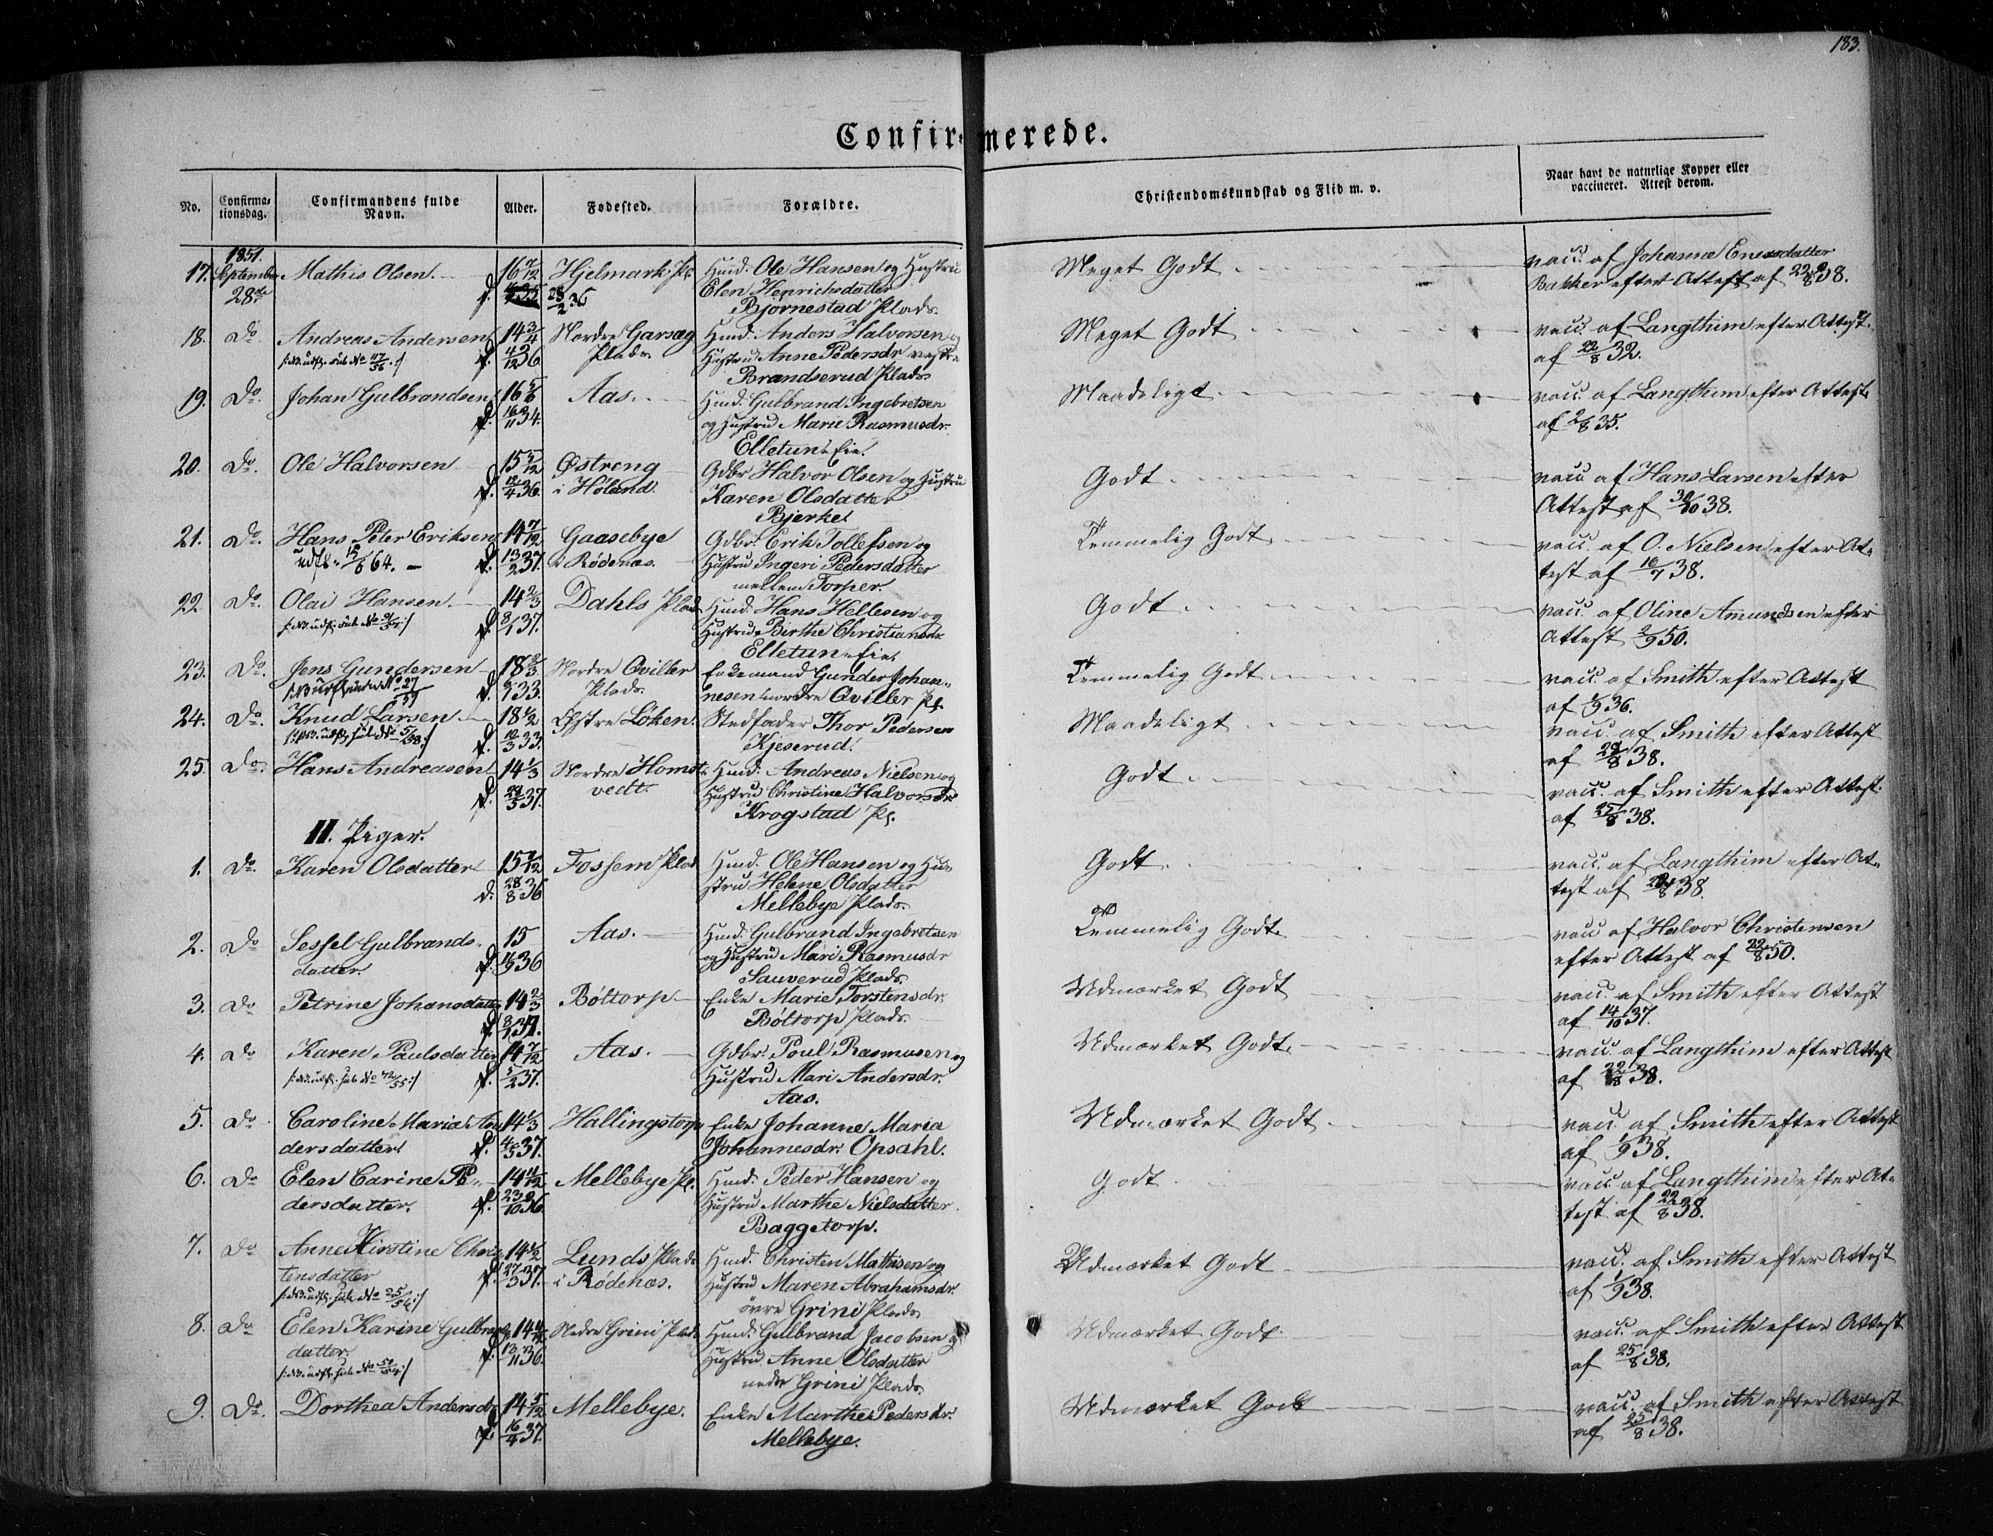 183.
Confirmerede.
No.
Confirma-
tionsdag.
Confirmandens fulde
Navn.
Alder.
Fødested.
Forældre.
Christendomskundskab og Flid m. v.
Naar havt de naturlige Kopper eller
vaccineret. Attest derom.
1851.
17. September Mathis Olsen. 16 7/12 Hjelmark Pl. Huusmd. Ole Hansen og Hustru Meget Godt vacc. af Johanne Enersdatter
28de f. 28/2 35 Elen Henrichsdatter Bakker efter Attest af 22/8 38.
Bjørnestad Plads.
18. Do. Andreas Andersen 14 3/4 Nordre Garsæg Huusmd. Anders Halvorsen og Meget Godt vacc. af Langthim efter Attest
f. 4/12 36. Plads. Hustru Anne Pedersdr vestre af 22/8 32.
Brandserud Plads
19. Do. Johan Gulbrandsen 16 5/6 Aas. Huusmd. Gulbrand Ingebretsen Maadeligt vacc. af Langthim efter Attest
f. 16/11 34. og Hustru Marie Rasmusdr. af 2/8 35.
Elletun Eie.
20. Do. Ole Halvorsen 15 5/12 Østreng Gdbr Halvor Olsen og Hustru Godt vacc. af Hans Larsen efter
f. 12/4 36. i Høland. Karen Olsdatter Attest af 30/10 38.
Bjerke.
21. Do. Hans Peter Eriksen 14 7/12 Gaasebye Gdbr. Erik Tollefsen og Temmelig Godt vacc. af O. Nielsen efter At-
udfl. 15/6 64. f. 13/2 37. i Rödenæs. Hustru Ingeri Pedersdatter test af 16/7 38.
mellem Torper.
22. Do. Olai Hansen. 14 2/3 Dahls Plads Huusmd. Hans Hellesen og Godt vacc. af Oline Amundsen efter
f. 8/1 37. Hustru Birthe Christiansdr Attest 2/9 50.
Elletun Eie.
23. Do. Jens Gundersen 18 2/3 Nordre Qviller Enkemand Gunder Johan- Temmelig Godt vacc. af Smith efter Attest
f. 33. Plads. nesen nordre Qviller Pl. af 1/9 36.
24. Do. Knud Larsen 18 1/2 Østre Löken. Stedfader Thor Pedersen Maadeligt vacc. af Smith efter Attest
f. 12/3 33. Kjeserud. af 28/8 38.
25. Do. Hans Andreasen 14 1/3 Nordre Homst- Huusmd. Andreas Nielsen og Godt vacc. af Smith efter Attest.
f. 29/5 37. vedt. Hustru Christine Halvorsdr af 25/8 38.
Krogstad Pl.
II. Piger.
1. Do. Karen Olsdatter 15 1/12 Fossem Plad Huusmd. Ole Hansen og Hu- Godt vacc. af Langthim efter At-
d. 28/8 36 stru Helene Olsdatter test af 38.
Mellebye Plads.
2. Do Sessel Gulbrands- 15 Aas. Huusmd. Gulbrand Ingebretsen Temmelig Godt. vacc. af Halvor Christensen
datter. f. 36 og Hustru Mari Rasmusdr efter Attest af 22/8 50.
Sauverud Plads.
3. Do Petrine Johansdatter 14 2/3 Böltorp Enke Marie Torstensdr. Udmærket Godt vacc. af Smith efter Attest
f. 8/1 37. Böltorp Plads. af 14/10 37.
4. Do Karen Paulsdatter 14 7/12 Aas. Gdbr. Poul Rasmusen og Udmærket Godt. vacc. af Langthim efter Attest
f. 5/2 37. Hustru Mari Andersdr. af 22/8 38.
Aas.
5. Do Caroline Maria An- 14 1/3 Hallingstorp Enke Johanne Maria Udmærket Godt vacc. af Smith efter Attest
dersdatter. f. 4/5 37. Johannesdr. Opsahl. af 1/9 38.
6. Do Elen Carine Pe- 14 11/12 Mellebye Pl. Huusmd. Peder Hansen og Godt vacc. af Langthim efter At-
dersdatter. f. 23/10 36 Hustru Marthe Nielsdatter test af 22/8 38.
Baggetorp.
7. Do Anne Kirstine Chris- 14 1/2 Lunds Plads Huusmd. Christen Mathisen og Udmærket Godt vacc. af Smith efter Attest
tensdatter f. 27/3 37. i Rödenæs. Hustru Maren Abrahamsdr. af 1/9 38.
övre Grini Plads
8. Do Elen Karine Gulbrands- 14 Nedre Grini Plads Huusmd. Gulbrand Jacobsen og Udmærket Godt. vacc. af Smith efter Attest
datter. f. 13/11 36. Hustru Anne Olsdatter af 25/8 38.
nedre Grini Plads
9. Do. Dorthea Andersdr 14 5/12 Mellebye. Enke Marthe Pedersdr. Udmærket Godt vacc. af Smith efter Attest
f. 16/4 37. Mellebye. af 25/8 38.